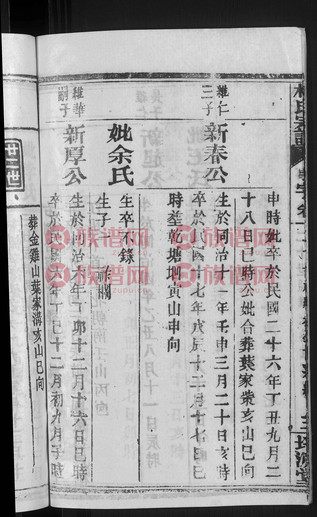 申時妣卒於民國二十六年丁丑九月二
十八日巳時公妣合葬葉家 亥山巳向
維仁
三子
新春公
生於同治十一年壬申三月二十日亥時
卒於民國十七年戊辰十二月十七日巳
時塟乾塘 寅山申向
妣余氏
生卒未錄
生子
維華
嗣子
新厚公
生於同治六年丁卯十二月十六日巳時
卒於民國六年丁巳十二月初九月子時
葬金雞山葉家 亥山巳向
廿二世
族谱网